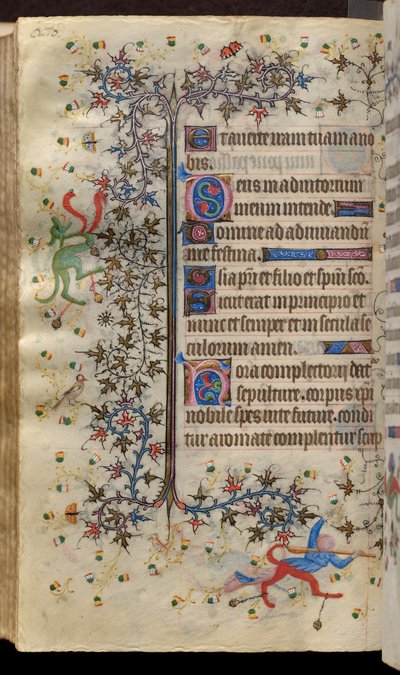 Et auerte iram tuam a no
bis.
Deus in adiutorium
meum intende.
Domine ad adiuuandū
me festina.
Glia pr̄i et filio et spūi sc̄o.
Sicut erat in principio et
nunc et semper et in secula se
culorum amen.
Hora completorij dat᷑
sepulture. corpus xp̄i
nobile spes uite future. condi
tur aromate complentur scrip